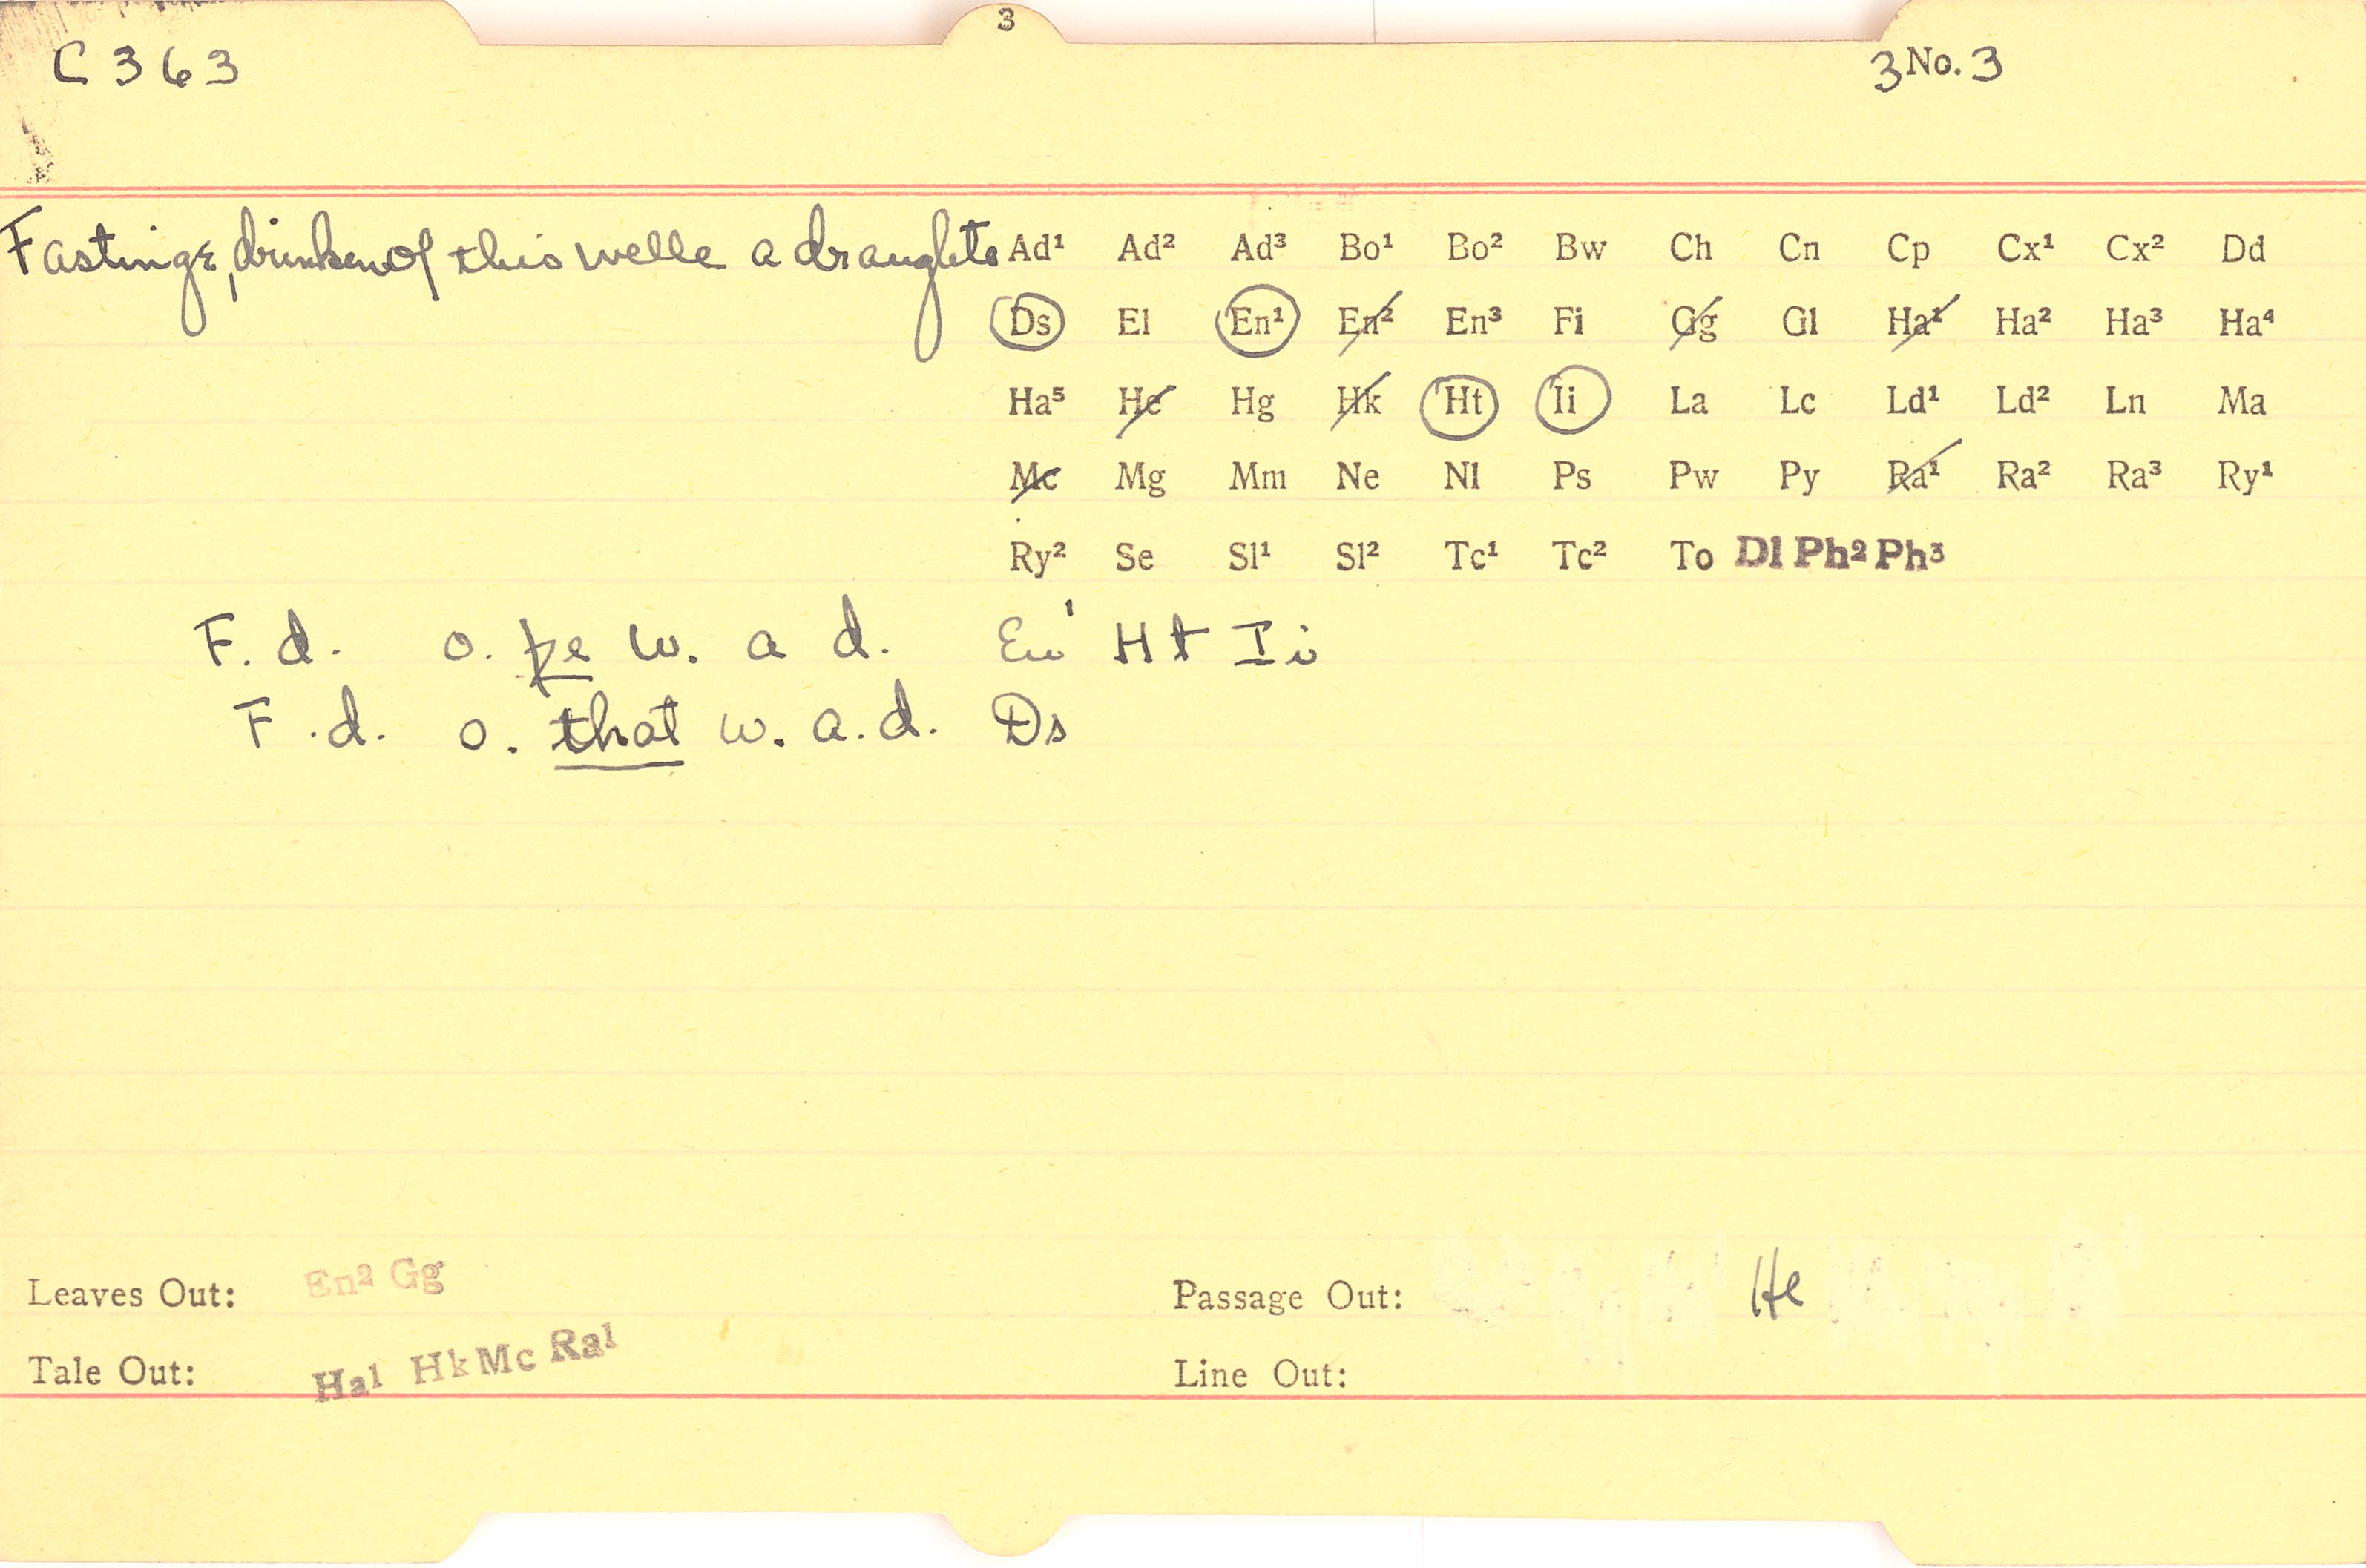 3
C 363
3 No. 3
Fastinge, drinken of this welle a draughte
Ad¹ Ad² Ad³ Bo¹ Bo² Bw Ch Cn Cp Cx¹ Cx² Dd
Ds El En¹ En² En³ Fi Gg Gl Ha¹ Ha² Ha³ Ha⁴
Ha⁵ He Hg Hk Ht Ii La Lc Ld¹ Ld² Ln Ma
Mc Mg Mm Ne Nl Ps Pw Py Ra¹ Ra² Ra³ Ry¹
Ry² Se Sl¹ Sl² Tc¹ Tc² To Dl Ph² Ph³
F. d. o. þe w. a d. En¹ Ht Ii
F. d. o. that w. a. d. Ds
Leaves Out: En² Gg
Passage Out: He
Tale Out: Ha¹ Hk Mc Ra¹
Line Out: